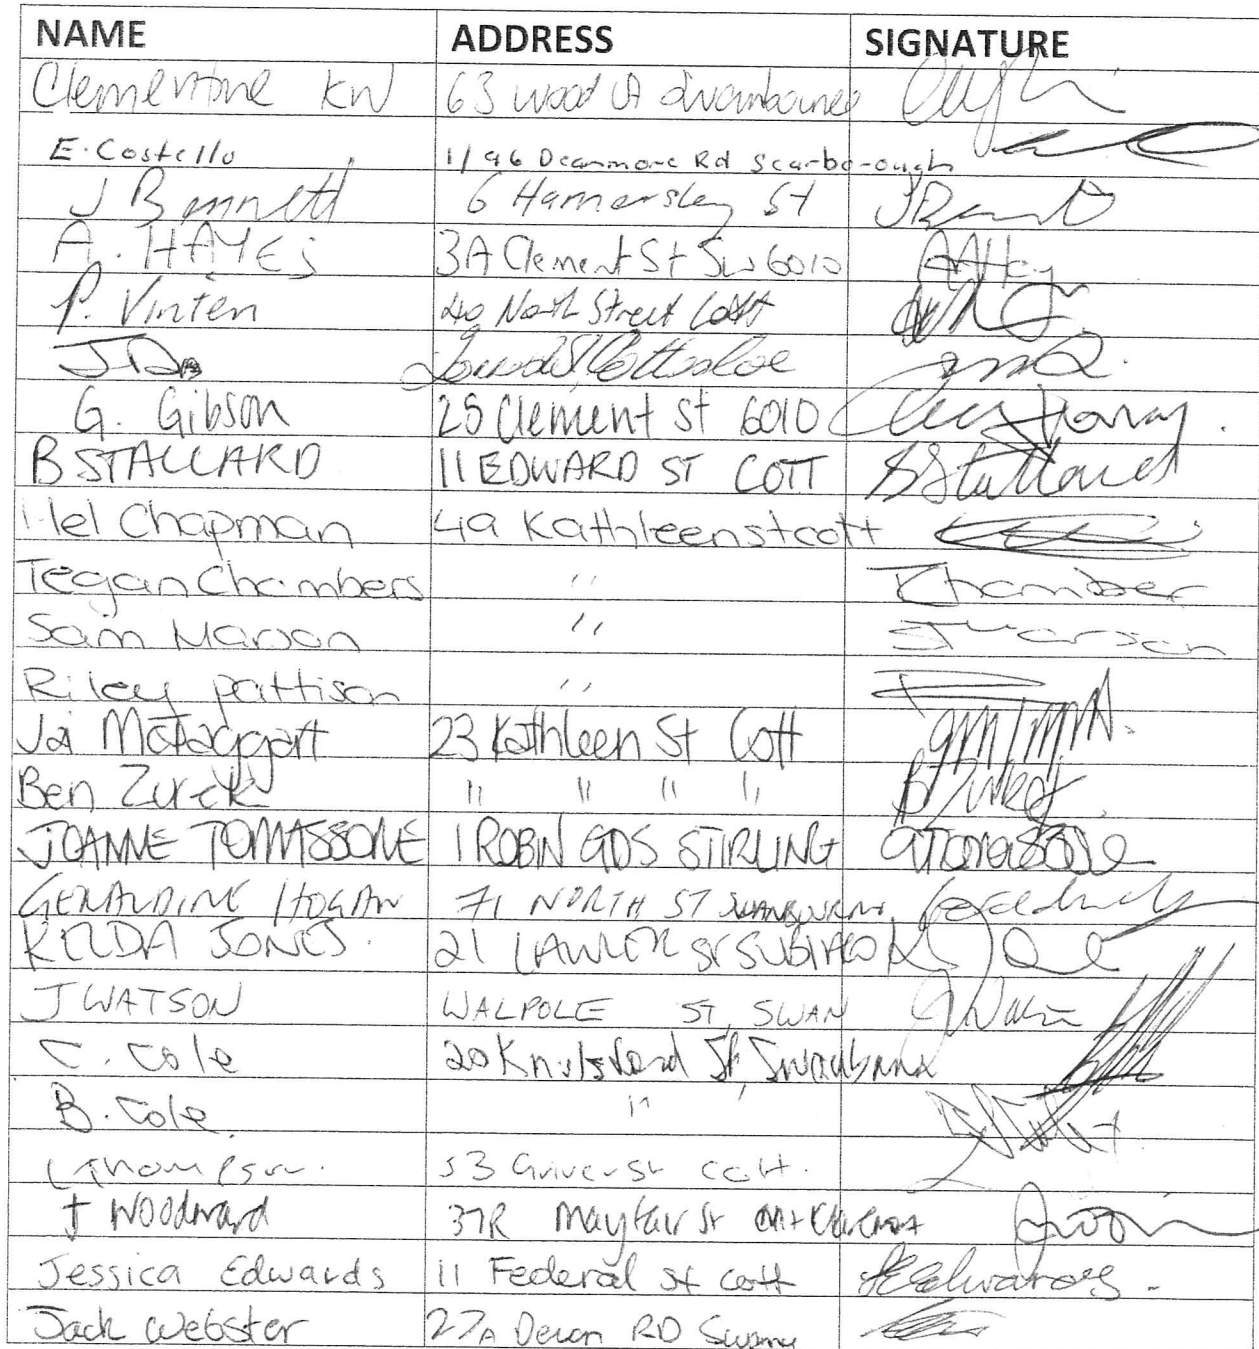 NAME ADDRESS SIGNATURE
Clementine KW 63 Wood St Swanbourne
E. Costello 1/96 Deanmore Rd Scarborough
J Bennett 6 Hamersley St
A. HAYES 3A Clement St Sw 6010
P. Vinten 40 North Street Cott
Cottesloe
G. Gibson 25 Clement St 6010
B STALLARD 11 EDWARD ST COTT B Stallard
Mel Chapman 49 Kathleen st cott
Tegan Chambers " T Chamber
Sam Marson " S Marson
Riley pattison "
Jai McTaggart 23 Kathleen St Cott
Ben Zurek " " " " B Zurek
JOANNE TOMASSONE 1 ROBIN GDS STIRLING
GERALDINE HOGAN 71 NORTH ST SWANBOURNE
KELDA JONES. 21 LAWLER ST SUBIACO
J WATSON WALPOLE ST, SWAN
C. Cole 20 Knutsford St, Swanbourne
B. Cole "
L Thompson. 53 Griver St Cott.
J Woodward 37R Mayfair St Mt Claremont
Jessica Edwards 11 Federal St Cott JEdwards.
Jack Webster 27A Devon RD Swanne